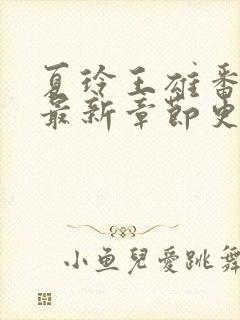 夏玲王雄番
最新章節史
小鱼兒愛跳舞